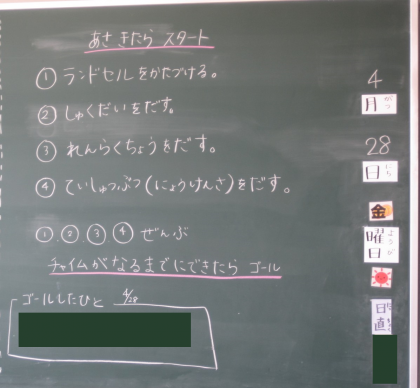 あさ きたら スタート
① ランドセルをかたづける。
② しゅくだいをだす。
③ れんらくちょうをだす。
④ ていしゅつぶつ(にょうけんさ)をだす。
① ② ③ ④ ぜんぶ
チャイムがなるまでにできたら ゴール
ゴールしたひと 4/28
4
月 がつ
28
日 にち
金
曜日 ようび
日直